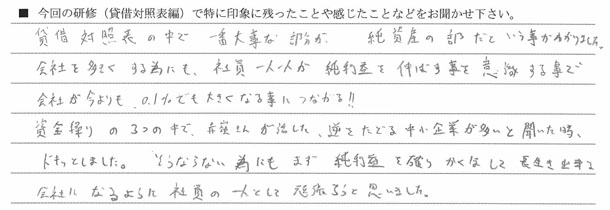 ■ 今回の研修（貸借対照表編）で特に印象に残ったことや感じたことなどをお聞かせ下さい。
貸借対照表の中で一番大事な部分が純資産の部だという事がわかりました。
会社を多きくする為にも、社員一人一人が純利益を伸ばす事を意識する事で
会社が今よりも、0.1%でも大きくなる事につながる!!
資金繰りの3つの中で、赤嶺さんが話した、逆をたどる中小企業が多いと聞いた時、
ドキッとしました。そうならない為にもまず純利益を確りかくほして長生き出来る
会社になるように社員の一人として頑張ろうと思いました。